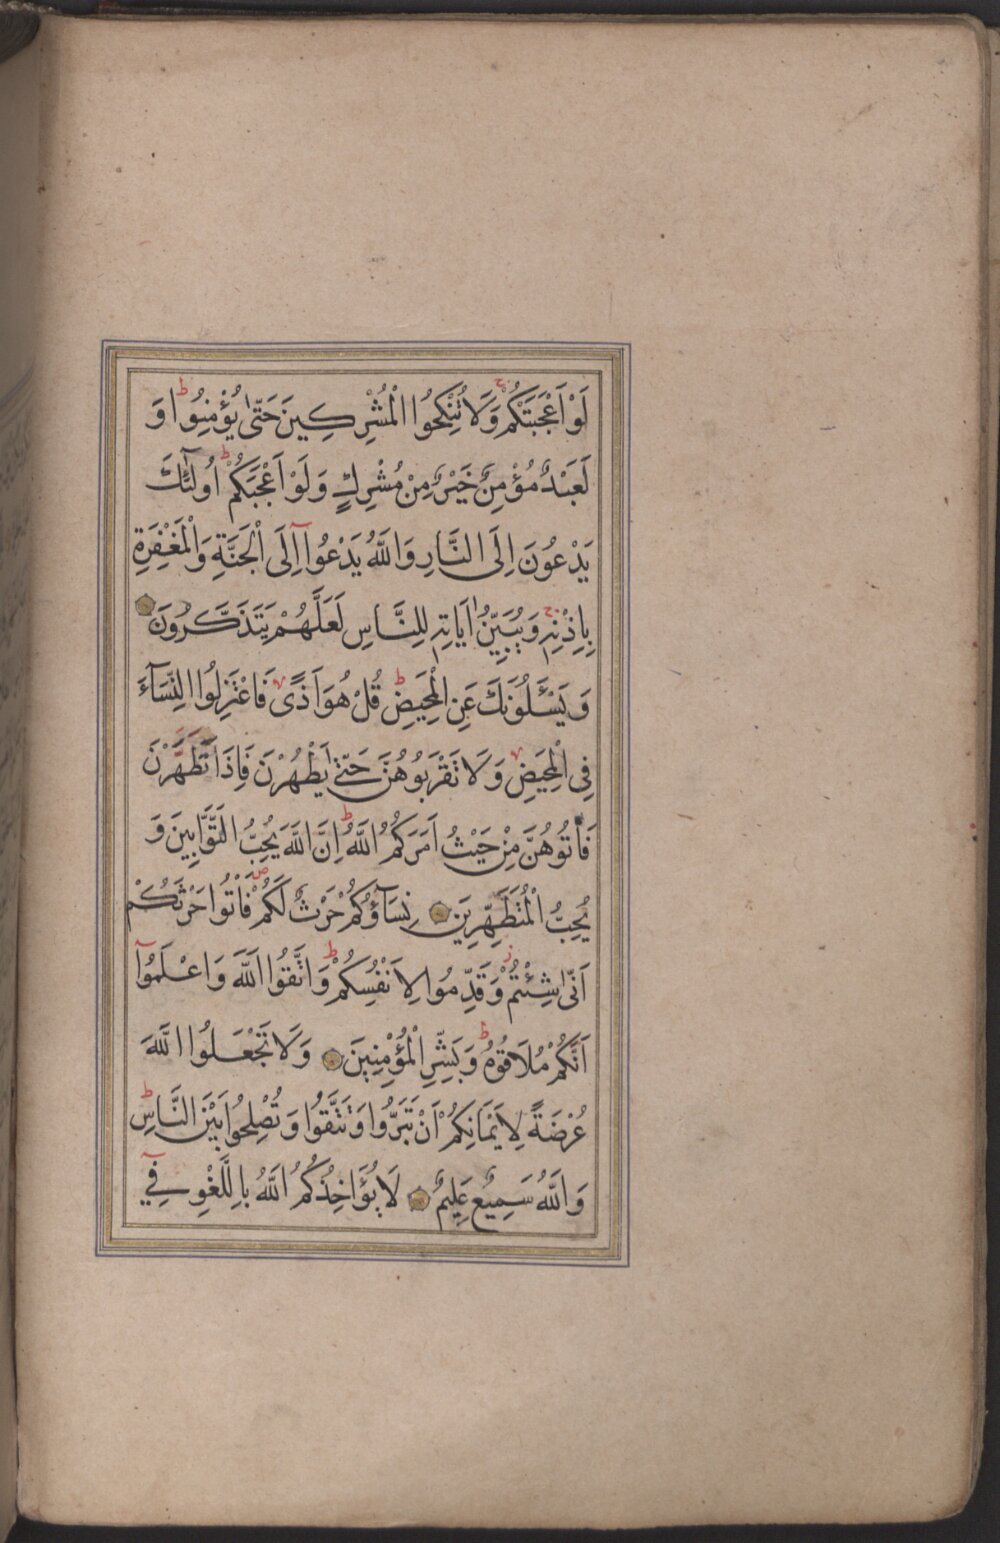 لَوْ اَعْجَبَتْكُمْ وَلَا تُنْكِحُوا الْمُشْرِكِينَ حَتّٰى يُؤْمِنُوا وَ
لَعَبْدٌ مُؤْمِنٌ خَيْرٌ مِنْ مُشْرِكٍ وَلَوْ اَعْجَبَكُمْ اُولٰٓئِكَ
يَدْعُونَ اِلَى النَّارِ وَاللّٰهُ يَدْعُوٓا اِلَى الْجَنَّةِ وَالْمَغْفِرَةِ
بِاِذْنِهٖ وَيُبَيِّنُ اٰيَاتِهٖ لِلنَّاسِ لَعَلَّهُمْ يَتَذَكَّرُونَ
وَيَسْـَٔلُونَكَ عَنِ الْمَحِيضِ قُلْ هُوَ اَذًى فَاعْتَزِلُوا النِّسَآءَ
فِى الْمَحِيضِ وَلَا تَقْرَبُوهُنَّ حَتّٰى يَطْهُرْنَ فَاِذَا تَطَهَّرْنَ
فَأْتُوهُنَّ مِنْ حَيْثُ اَمَرَكُمُ اللّٰهُ اِنَّ اللّٰهَ يُحِبُّ التَّوَّابِينَ وَ
يُحِبُّ الْمُتَطَهِّرِينَ نِسَآؤُكُمْ حَرْثٌ لَكُمْ فَأْتُوا حَرْثَكُمْ
اَنّٰى شِئْتُمْ وَقَدِّمُوا لِاَنْفُسِكُمْ وَاتَّقُوا اللّٰهَ وَاعْلَمُوٓا
اَنَّكُمْ مُلَاقُوهُ وَبَشِّرِ الْمُؤْمِنِينَ وَلَا تَجْعَلُوا اللّٰهَ
عُرْضَةً لِاَيْمَانِكُمْ اَنْ تَبَرُّوا وَتَتَّقُوا وَتُصْلِحُوا بَيْنَ النَّاسِ
وَاللّٰهُ سَمِيعٌ عَلِيمٌ لَا يُؤَاخِذُكُمُ اللّٰهُ بِاللَّغْوِ فِىٓ